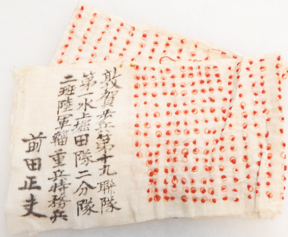 敦賀歩兵第十九聯隊
第一水堀田隊二分隊
二班陸軍輜重兵特務兵
前田正夫